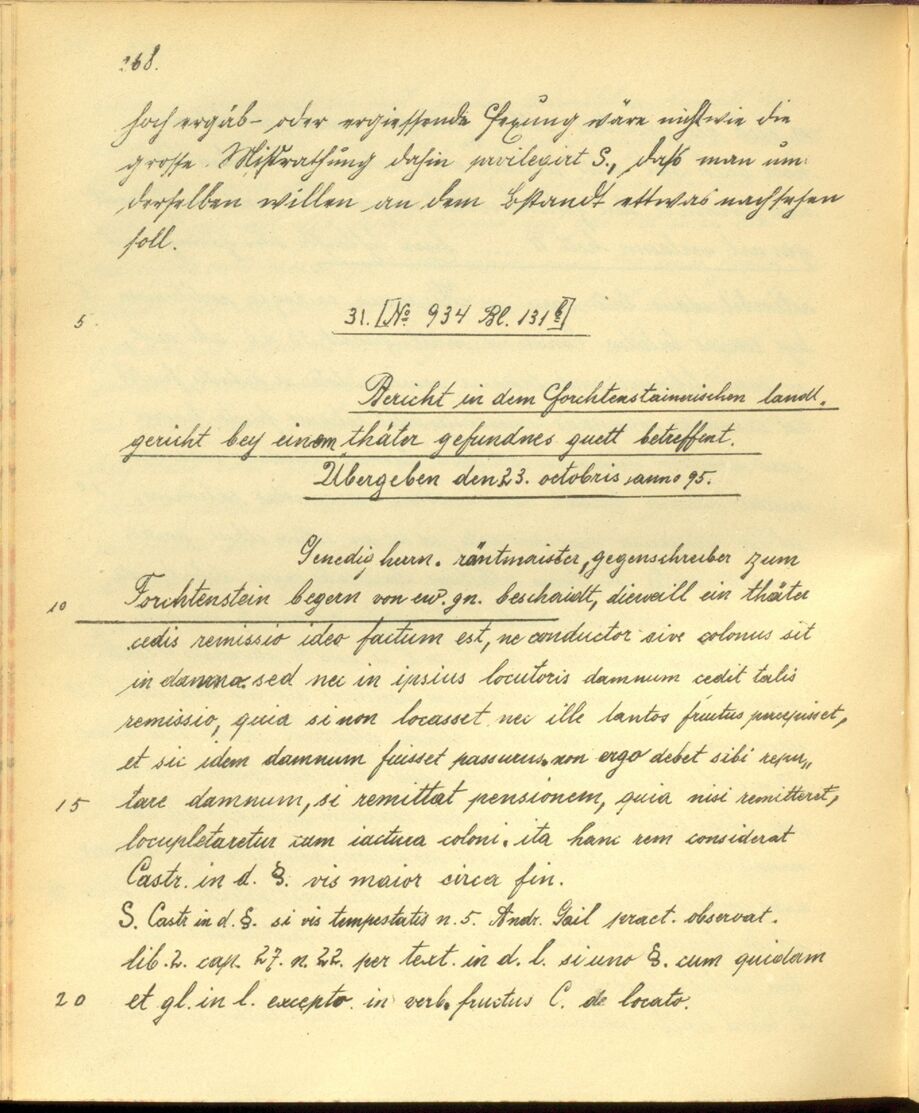 168.
hoch ergäb- oder ergiessende Fexung wäre nicht wie die
grosse Missrathung dahin privilegirt S., dass man um
derselben willen an dem Bstandt ettwas nachsehen
soll.
5 31. [No 934 Bl. 131 b]
Bericht in dem Forchtenstainerischen landt„
gericht bey einem thäter gefundnes guett betreffent.
Übergeben den 23. octobris anno 95.
Genedig herrn. räntmaister, gegenschreiber zum
10 Forchtenstein begern von ew. gn. beschaidt, dieweill ein thäter
cedis remissio ideo factum est, ne conductor sive colonus sit
in damna. sed nec in ipsius locutoris damnum cedit talis
remissio, quia si non locasset nec ille tantos fructus percepisset,
et sic idem damnum fuisset passurus. non ergo debet sibi repu„
15 tare damnum, si remittat pensionem, quia nisi remitteret,
locupletaretur cum iactura coloni. ita hanc rem considerat
Castr. in d. §. vis maior circa fin.
S. Castr in d. §. si vis tempestatis n. 5. Andr. Gail pract. observat.
lib. 2. cap. 27. n. 22. per text. in d. l. si uno §. cum quidam
20 et gl. in l. excepto in verb. fructus C. de locato.